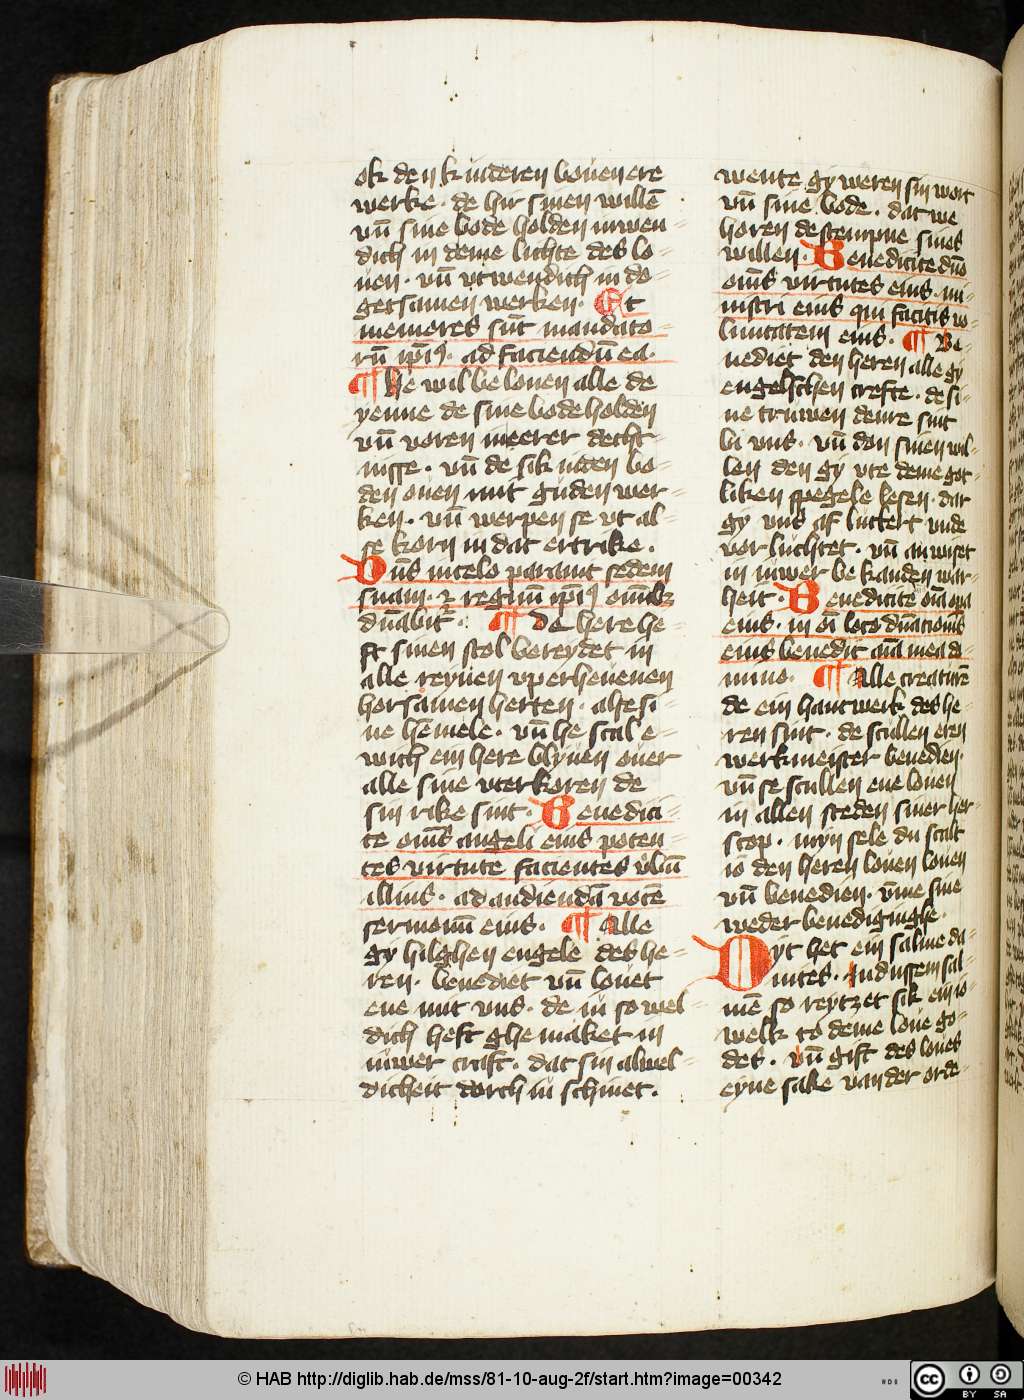 ok den kinderen bouen ere
werke · de hir sinen willē
vn̄ sine bode holden inwen=
dich in deme lichte des lo=
uen · vn̄ vtwendich in do=
getsamen werken · Et
memores sūt mandato=
rū ipi9 · ad faciendū ea ·
¶ He wil be louen alle de
yenne de sine bode holden
vn̄ voren in eerer decht=
nisse · vn̄ de sik in den bo=
den ouen mit guden wer=
ken · vn̄ werpen se vt al=
se korn in dat ertrike ·
Dn̄s in celo parauit sedem
suam · ⁊ regnū ipi9 omībz
dn̄abit᷑ · ¶ De here he=
ft sinen stol bereydet in
alle reynen vperheuenen
horsamen herten · alse si=
ne hēmele · vn̄ he scal e=
wich ein here blyuen ouer
alle sine vterkoren de
sin rike sint · Benedici=
te om̄s angeli eius poten=
tes virtute facientes v̄bū
illius · ad audiendā vocē
sermonū eius · ¶ Alle
gy hilghen engele des he=
ren · benediet vn̄ louet
ene mit vns · de iu so wel=
dich heft ghe maket in
iuwer craft · dat sin alwel=
dicheit dorch iu schinet ·
wente gy weren sin wort
vn̄ sine bode · dat we
horen de stempne sines
willen · Benedicite dn̄o
om̄s virtutes eius · mi=
nistri eius qui facitis vo=
luntatem eius · ¶ Be=
nediet den heren alle gy
engelschen crefte · de si=
ne truwen denre sint
bi vns · vn̄ don sinen wil=
len den gy vte deme got=
liken spegele lesen · dat
gy vns af luttert vnde
vorluchtet · vn̄ an wiset
in iuwer be kanden war=
heit · Benedicite om̄a opa
eius · in oī loco dn̄acionis
eius benedic aīa mea do=
mino · ¶ Alle creaturē
de ein hantwerk des he=
ren sint · de scullen eren
werkmeister benedien ·
vn̄ se scullen ene louen
in allen steden siner her=
scop · myn sele du scalt
io den heren louen louen
vn̄ benedien · v̄me sine
weder benediginghe ·
Dyt het ein salme da=
uites · In dussem sal=
mē so reytzet sik ein io=
welk to deme loue go=
des · vn̄ gift des loues
eyne sake van der orde=
© HAB http://diglib.hab.de/mss/81-10-aug-2f/start.htm?image=00342
cc BY SA